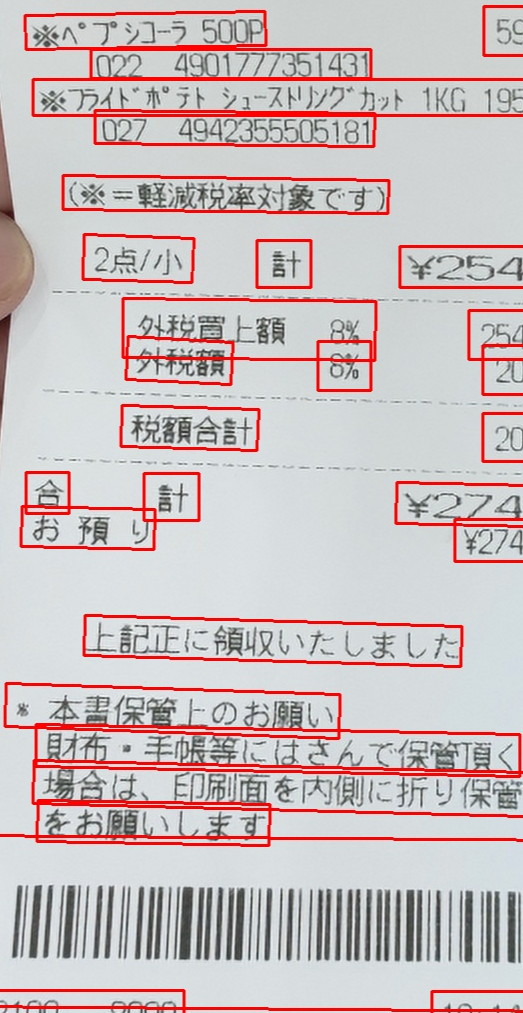 ※ペプシコーラ 500P 59
022 4901777351431
※フライドポテト シューストリングカット 1KG 195
027 4942355505181
(※=軽減税率対象です)
2点/小 計 ¥254
外税買上額 8% 254
外税額 8% 20
税額合計 20
合 計 ¥274
お預り ¥274
上記正に領収いたしました
* 本書保管上のお願い
財布・手帳等にはさんで保管頂く
場合は、印刷面を内側に折り保管
をお願いします